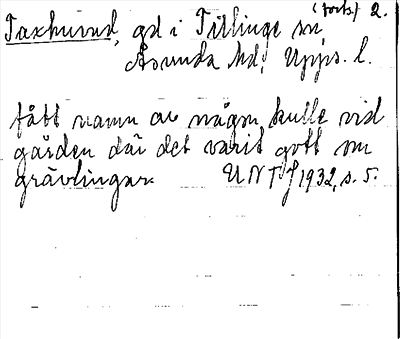 (forts.) 2.
Taxhumrad, gd i Tillinge sn
Åsunda hd, Upps. l.
fått namn av någon kulle vid
gården där det varit gott om
grävlingar. UNT J 1932, s. 5.